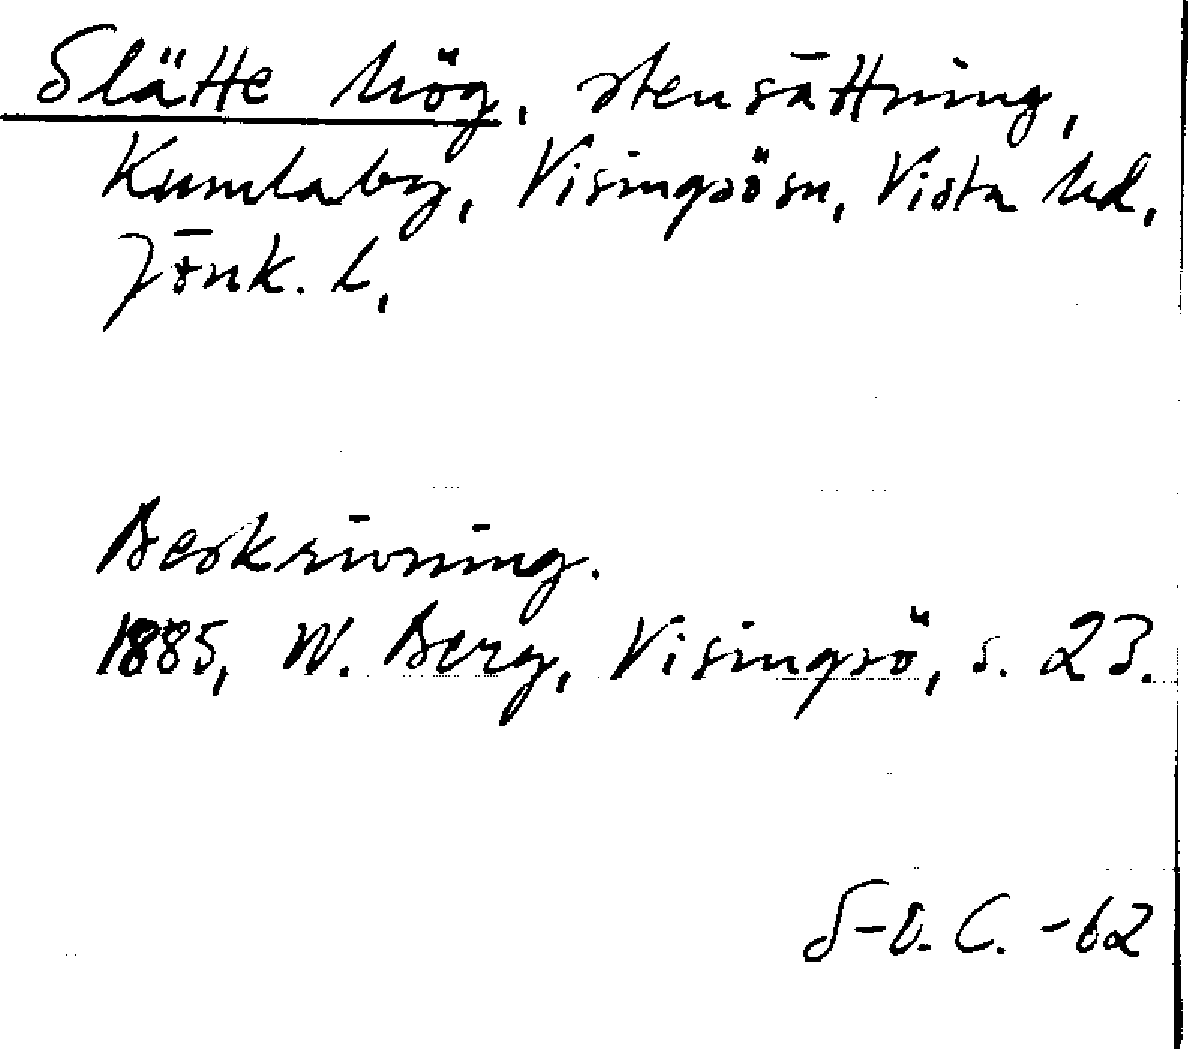 Slätte hög, stensättning,
Kumlaby, Visingsösn, Vista hd,
Jönk. l,
Beskrivning.
1885, W. Berg, Visingsö, s. 23.
S-O. C. -62